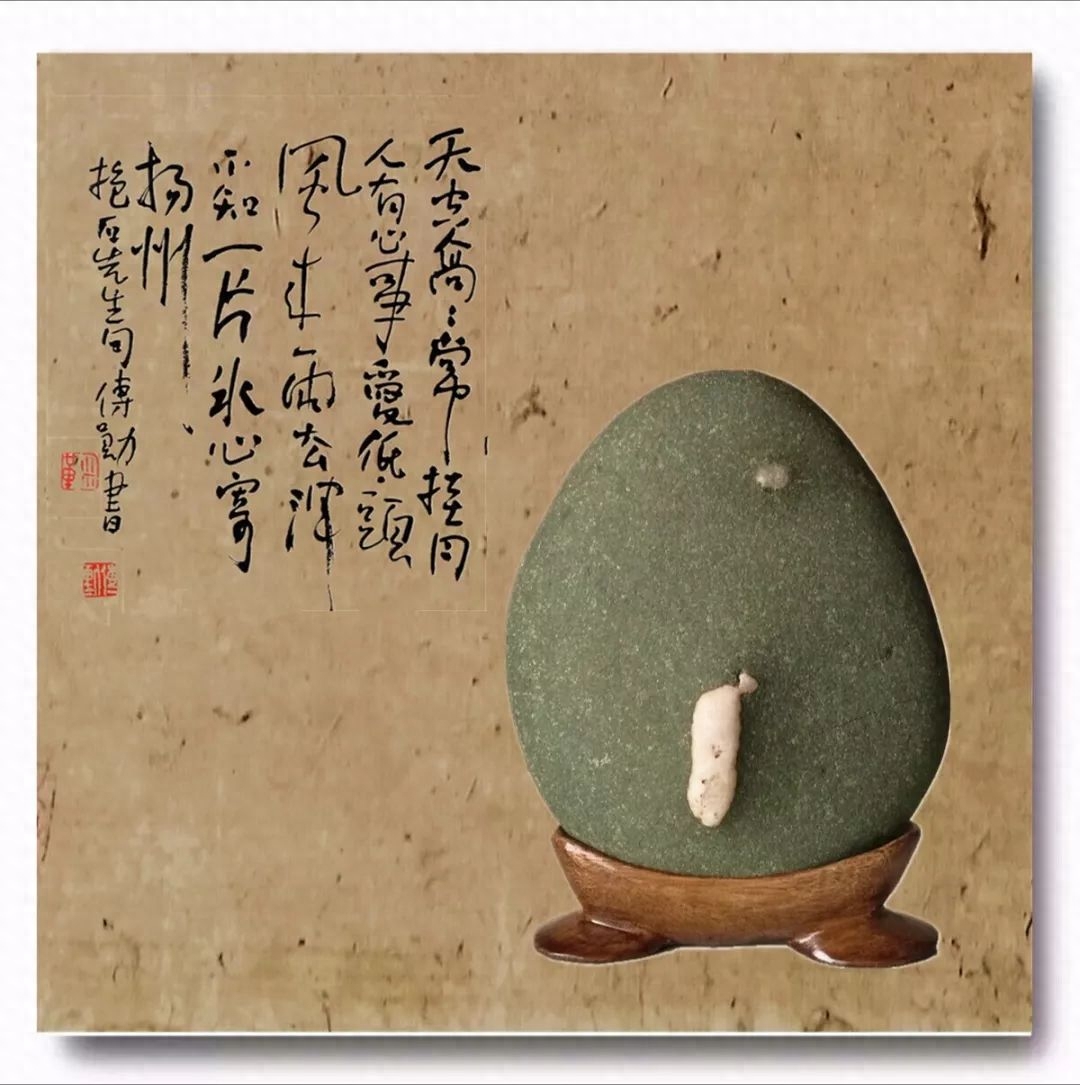 天空高高常挂月
人有心事愛低頭
風来雨去渾
不知一片冰心寄
扬州
抱石先生句傅勛書